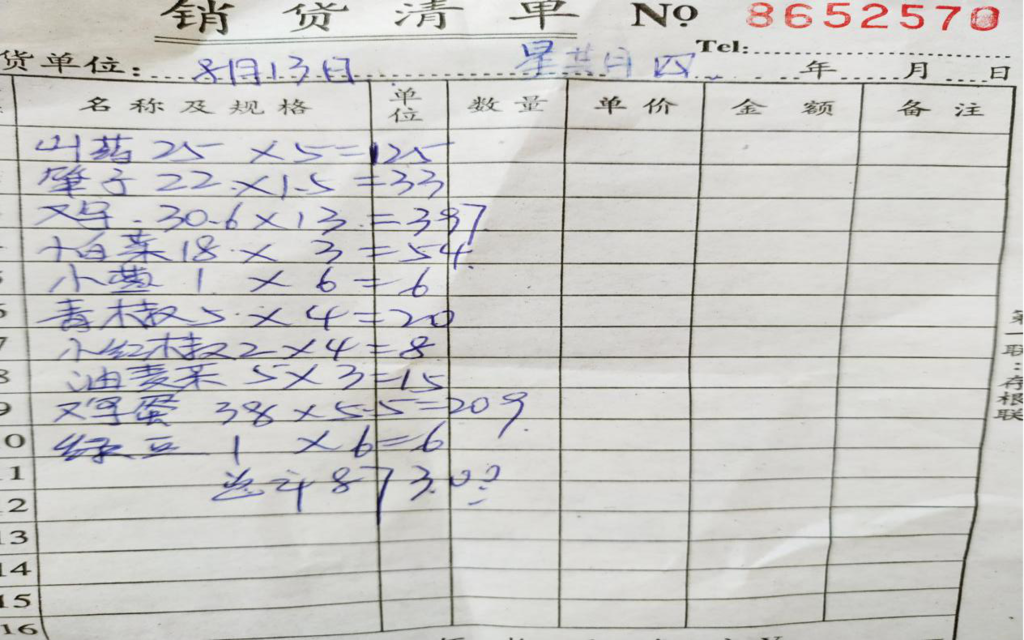 销货清单 No 8652570
Tel:
货单位: 8月13日 星其日四 年 月 日
名称及规格 单位 数量 单价 金额 备注
山药 25 × 5 = 125
笋子 22 × 1.5 = 33
又鸟 30.6 × 13 = 397
小白菜 18 × 3 = 54
小葱 1 × 6 = 6
青椒 5 × 4 = 20
7 小红椒 2 × 4 = 8
8 油麦菜 5 × 3 = 15
9 鸡蛋 38 × 5.5 = 209
0 绿豆 1 × 6 = 6
11 总计 873.00
12
13
14
15
16
第一联:存根联